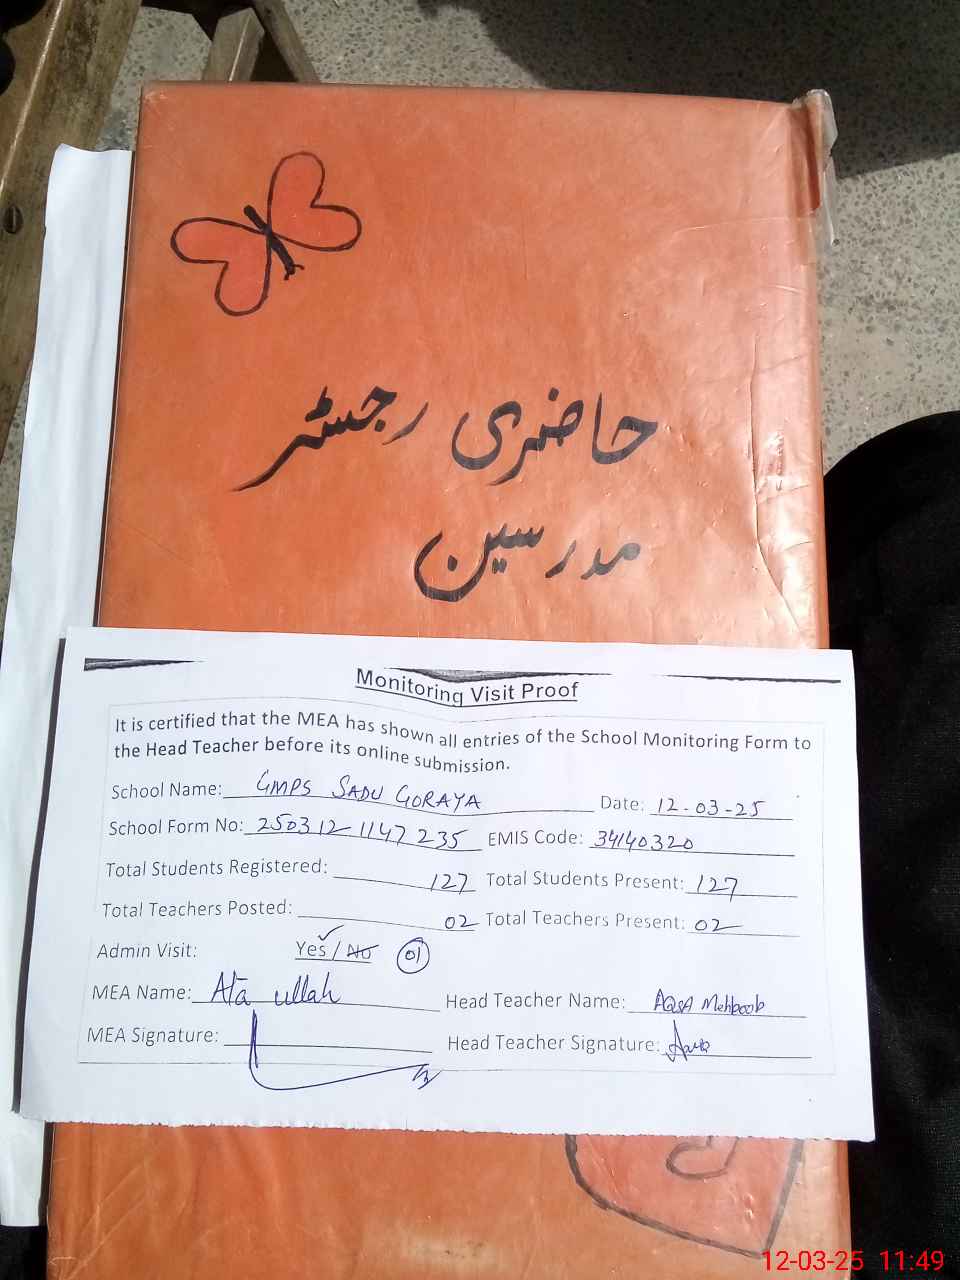 حاضری رجسٹر
مدرسین
Monitoring Visit Proof
It is certified that the MEA has shown all entries of the School Monitoring Form to
the Head Teacher before its online submission.
School Name: GMPS SADU GORAYA Date: 12-03-25
School Form No: 250312-1147235 EMIS Code: 34140320
Total Students Registered: 127 Total Students Present: 127
Total Teachers Posted: 02 Total Teachers Present: 02
Admin Visit: Yes / No 01
MEA Name: Ata ullah Head Teacher Name: AQSA Mehboob
MEA Signature: Head Teacher Signature:
12-03-25 11:49